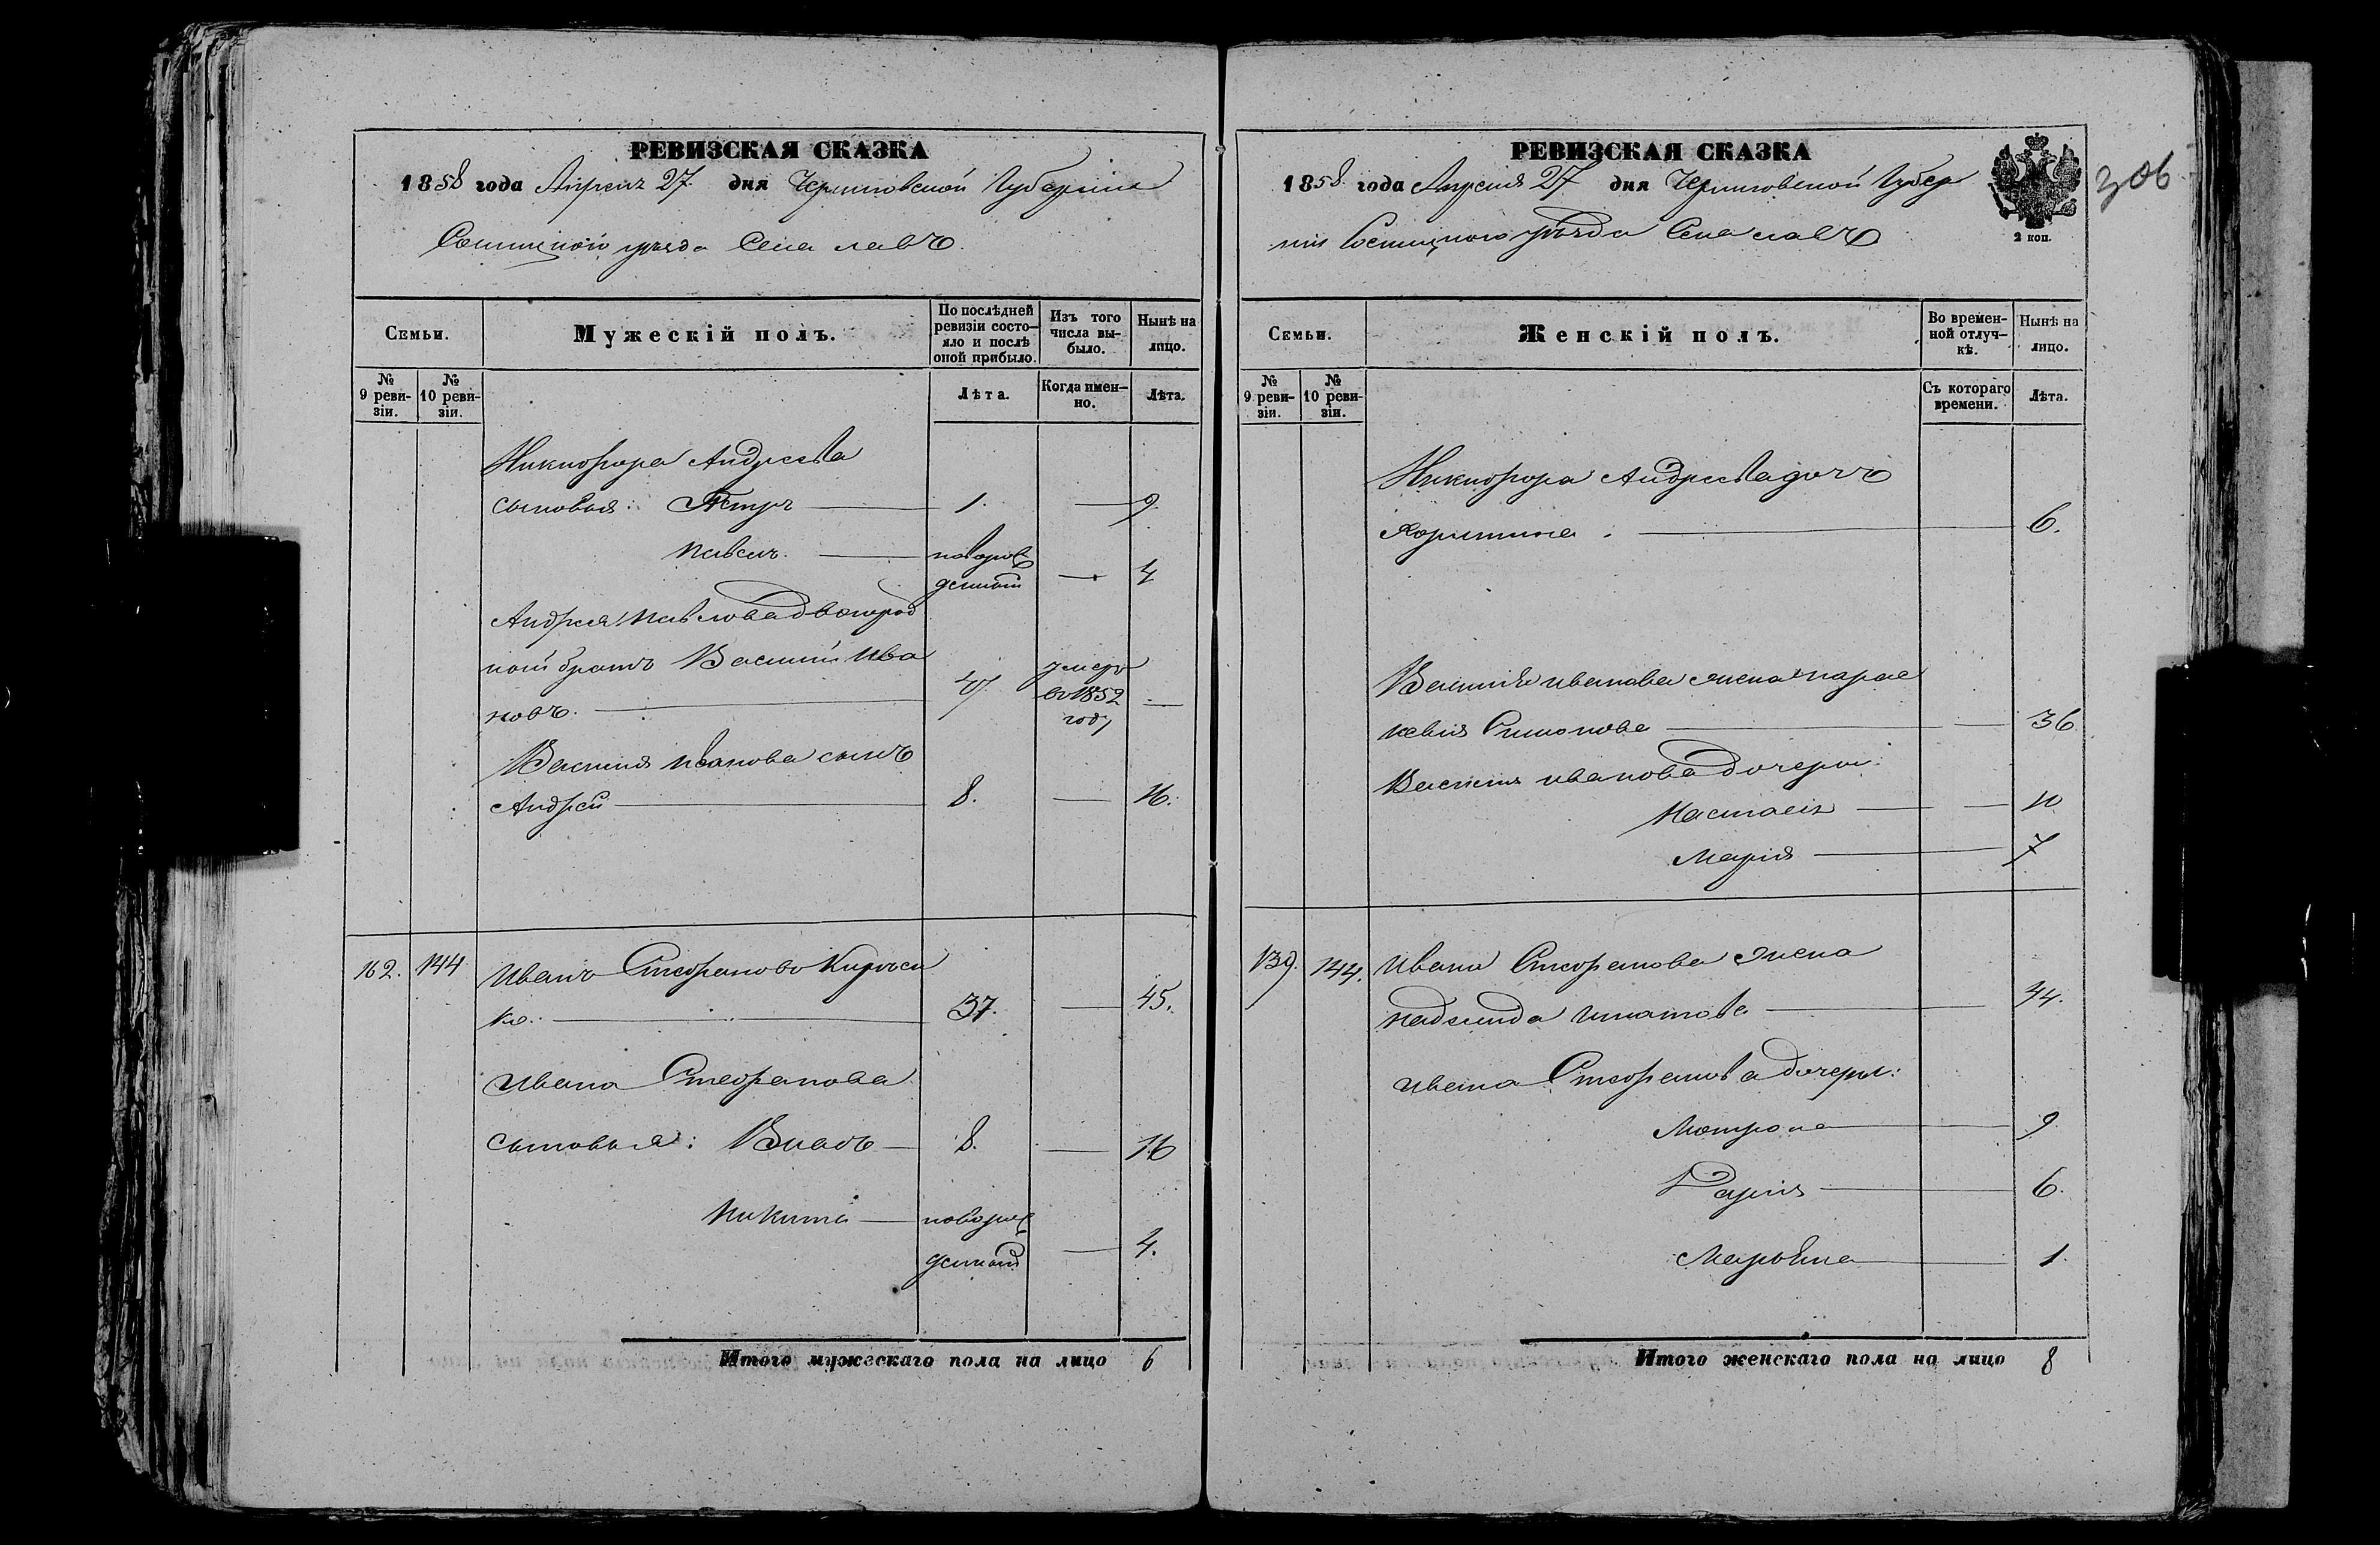 РЕВИЗСКАЯ СКАЗКА
1858 года Апреля 27 дня Черниговской Губернии
Сосницкого уезда Села Лавъ
Семьи.
Мужескій полъ.
По послѣдней ревизіи состо-
яло и послѣ
оной прибыло.
Изъ того
числа вы-
было.
Нынѣ на
лицо.
№
9 реви-
зіи.
№
10 реви-
зіи.
Лѣта.
Когда имен-
но.
Лѣта.
Никифора Андреева
сыновья: Петръ 1. — 9.
Павелъ. новорож
денный — 4
Андрея Павлова двоюрод
ный братъ Василий Ива
новъ. умеръ
въ 1852
году —
Василия Иванова сынъ
Андрей 8. — 16.
162. 144 Иванъ Стефановъ
ко. 37. — 45.
Ивана Стефанова
сыновья: Власъ 8. — 16
Никита новорож
денный — 4.
Итого мужескаго пола на лицо 6
РЕВИЗСКАЯ СКАЗКА
306
1858 года Апреля 27 дня Черниговской Губер
нии Сосницкого уезда Села Лавъ
2 коп.
Семьи.
Женскій полъ.
Во времен-
ной отлуч-
кѣ.
Нынѣ на
лицо.
№
9 реви-
зіи.
№
10 реви-
зіи.
Съ котораго
времени.
Лѣта.
Никифора Андреева дочь
Харитина. 6.
Василия Иванова жена Парас
кевия Симонова 36
Василия Иванова дочери:
Настасия 10
Мария 7
139. 144. Ивана Стефанова жена
Надежда Игнатова 44.
Ивана Стефанова дочери:
Мотрона 9
Дария 6.
Марьяна 1.
Итого женскаго пола на лицо 8